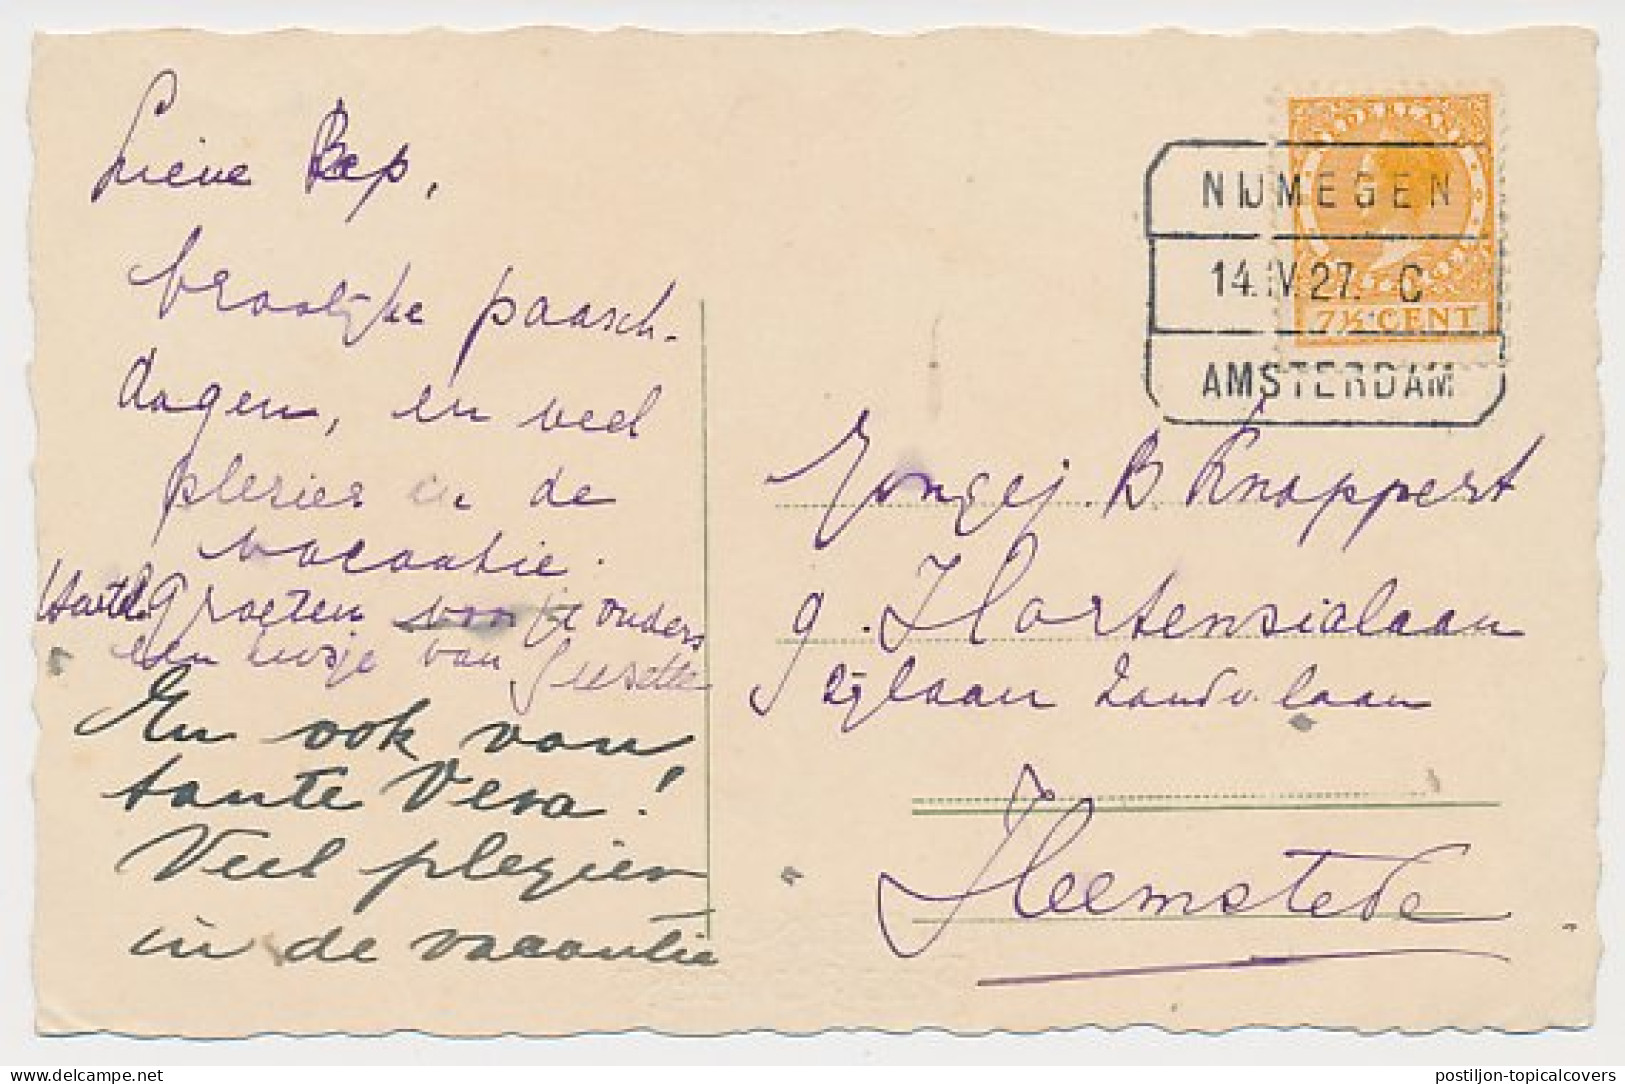 Lieve Bep,
vroolijke paasch-
dagen, en veel
plezier in de
vacantie.
Hartel. Groeten voor je ouders
een kusje van
En ook van
tante Vera!
Veel plezier
in de vacantie
NIJMEGEN
14.IV.27. C
AMSTERDAM
7½ CENT
Jongej. B. Knappert
9. Hortensialaan
Zijlaan Zandv. laan
Heemstede
postiljon-topicalcovers